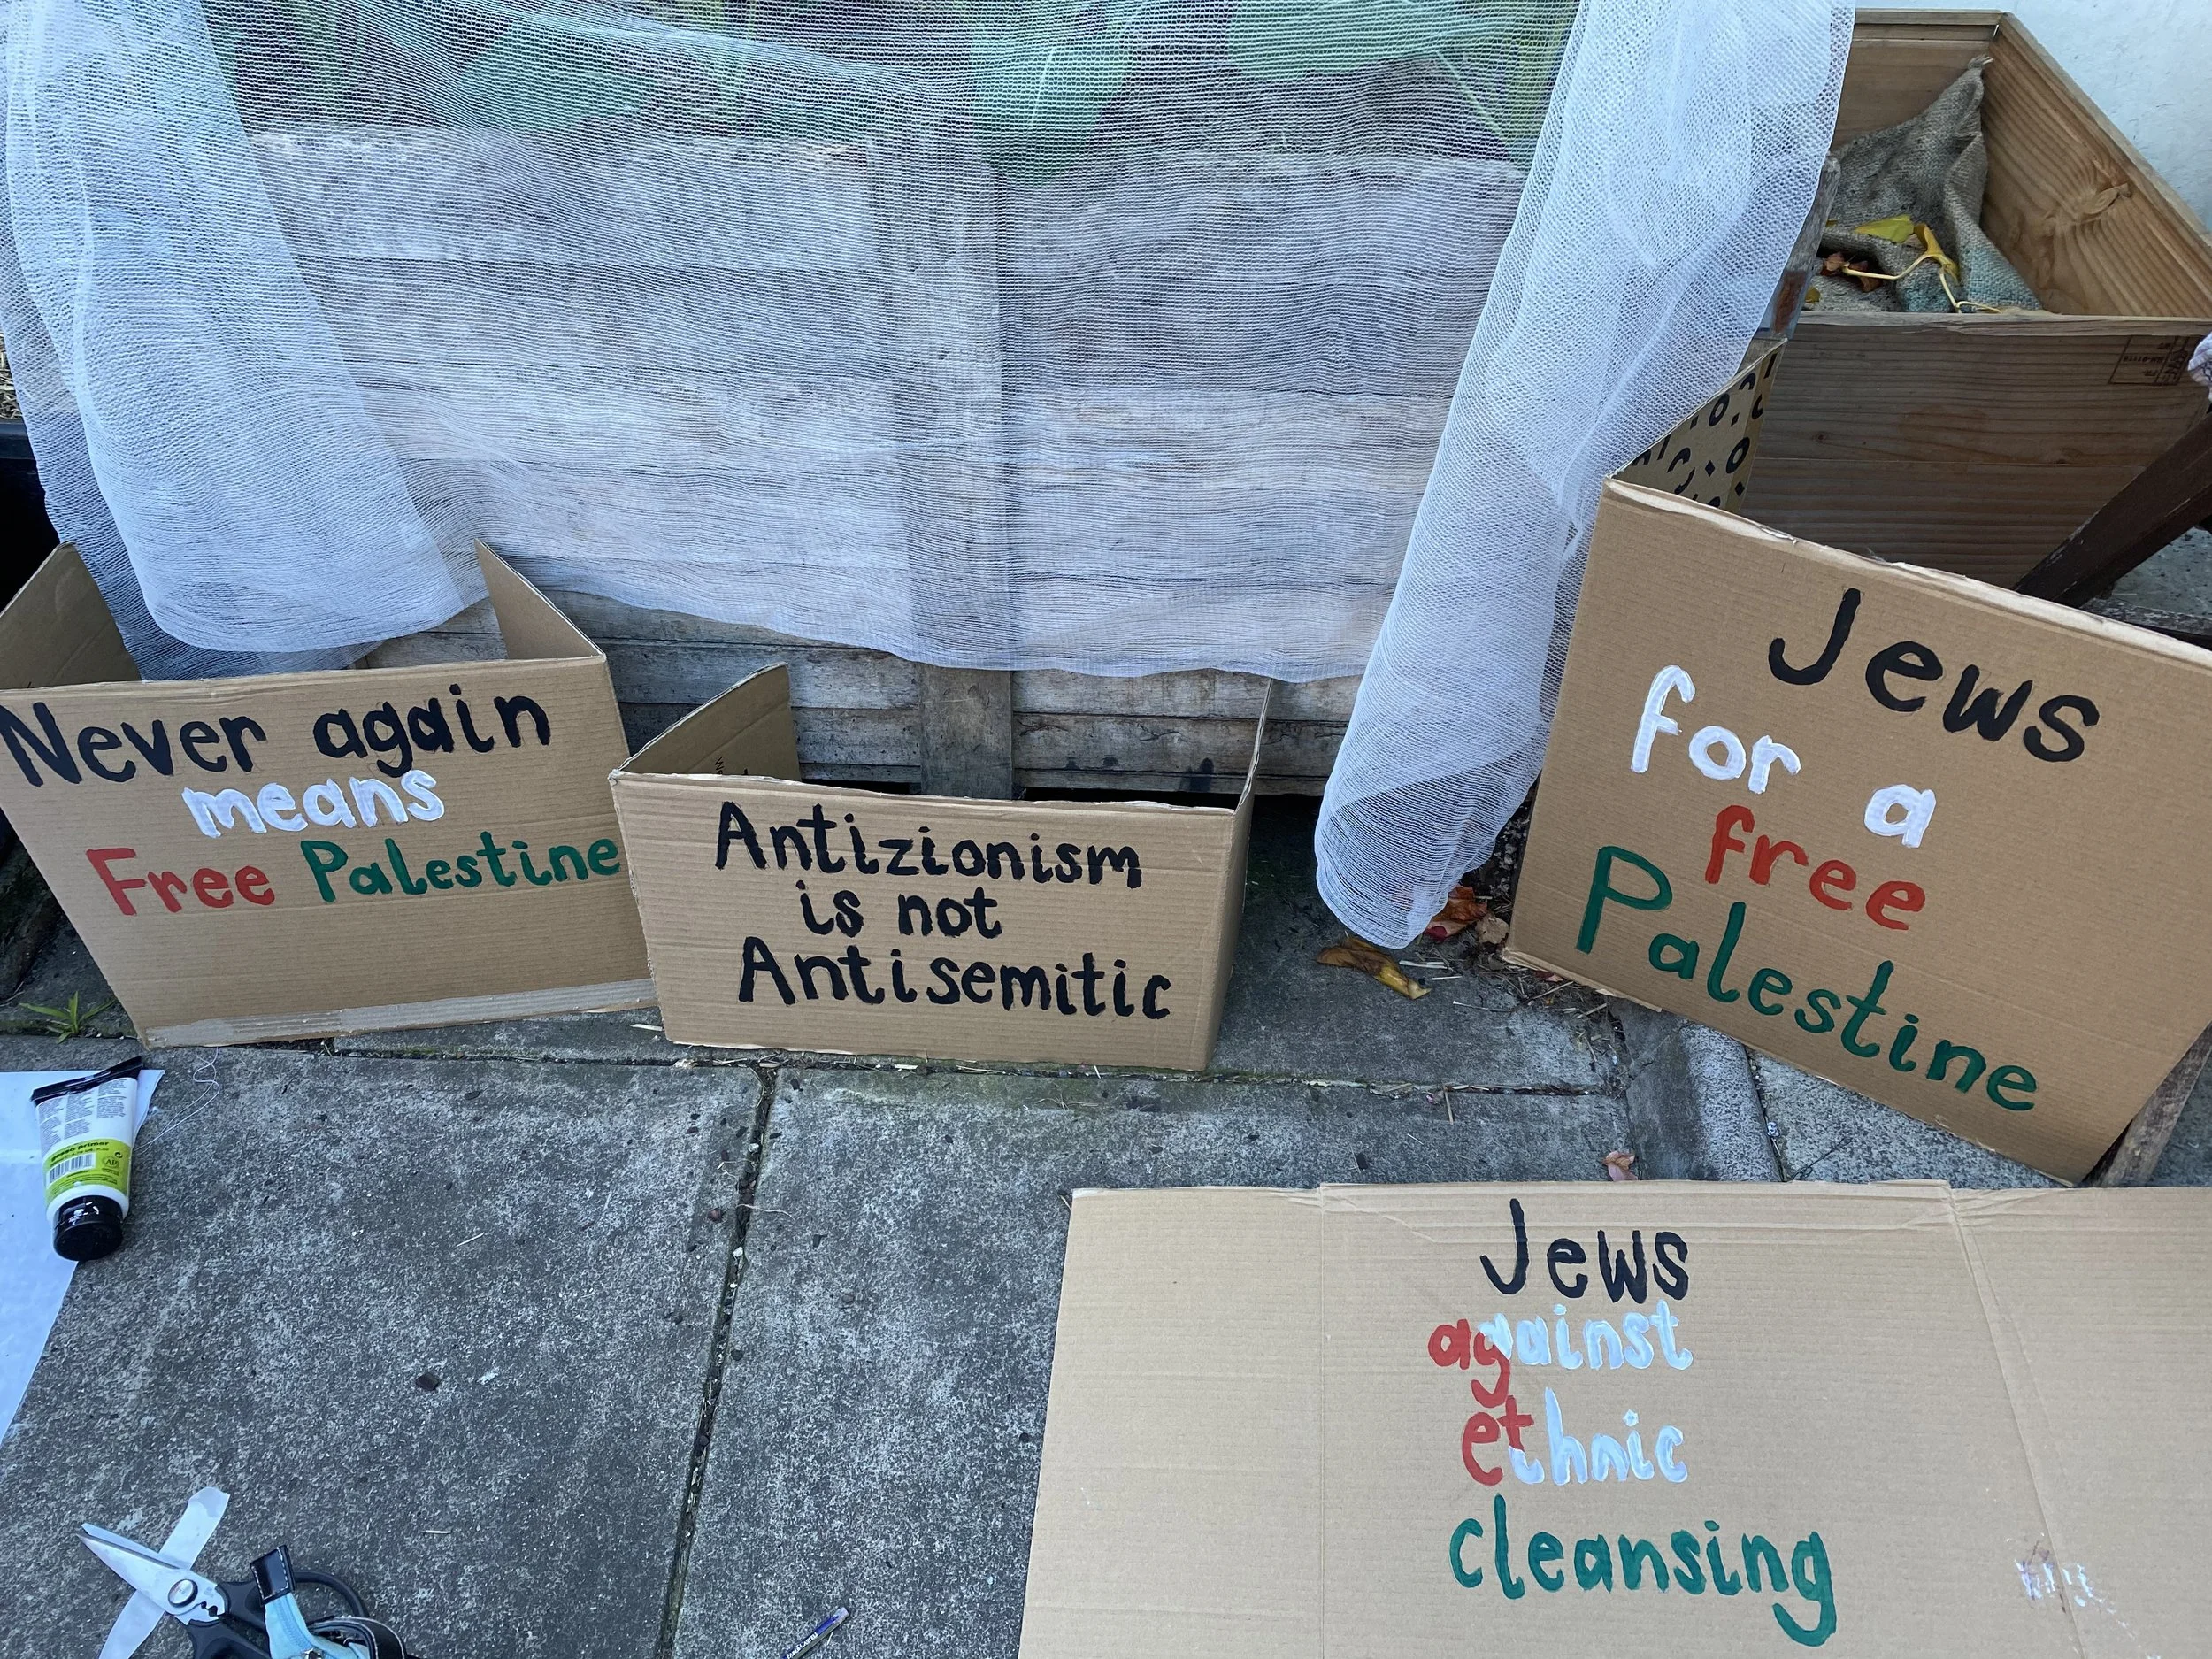 Never again
means
Free Palestine
Antizionism
is not
Antisemitic
Jews
for a
free
Palestine
Jews
against
ethnic
cleansing
gesso primer